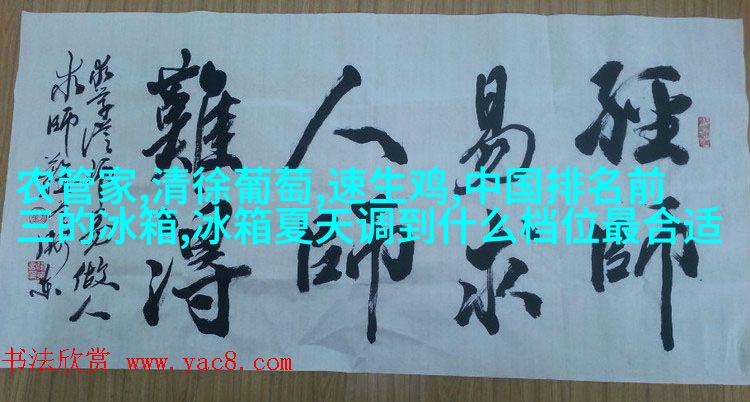 經師
易求
人師
難得
做人
求師
农管家,清徐葡萄,速生鸡,中国排名前
三的冰箱,冰箱夏天调到什么档位最合适
书法欣赏 www.yac8.com